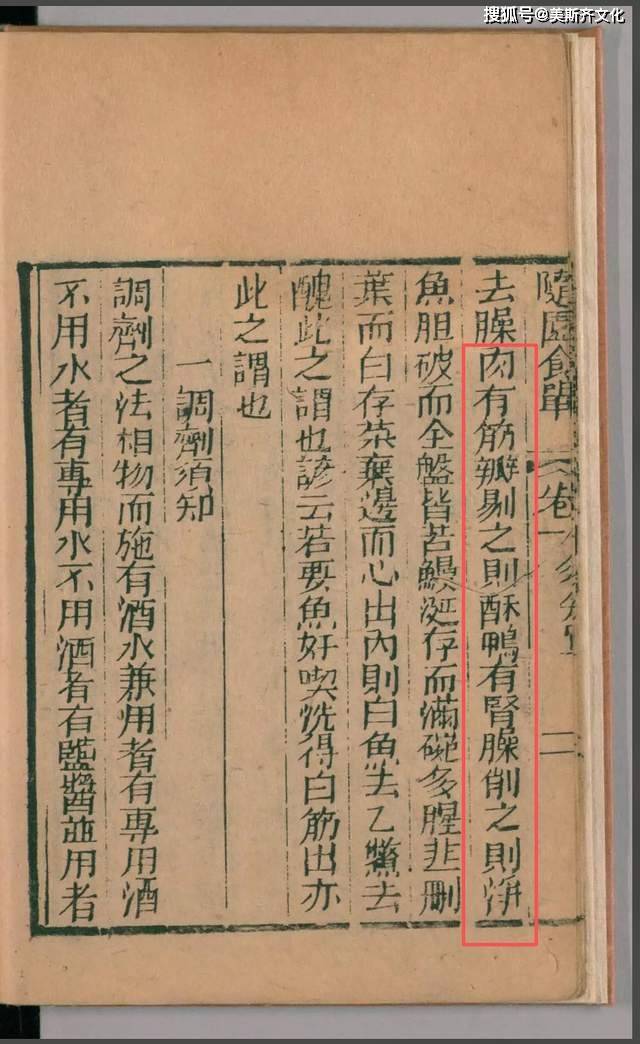 搜狐号@美斯齐文化
隨園食單 卷一
二
去臊肉有筋瓣剔之則酥鴨有腎臊削之則淨
魚胆破而全盤皆苦鰻涎存而滿碗多腥韭刪
葉而白存菜棄邊而心出內則曰魚去乙鱉去
醜此之謂也諺云若要魚好喫洗得白筋出亦
此之謂也
一調劑須知
調劑之法相物而施有酒水兼用者有專用酒
不用水者有專用水不用酒者有鹽醬並用者